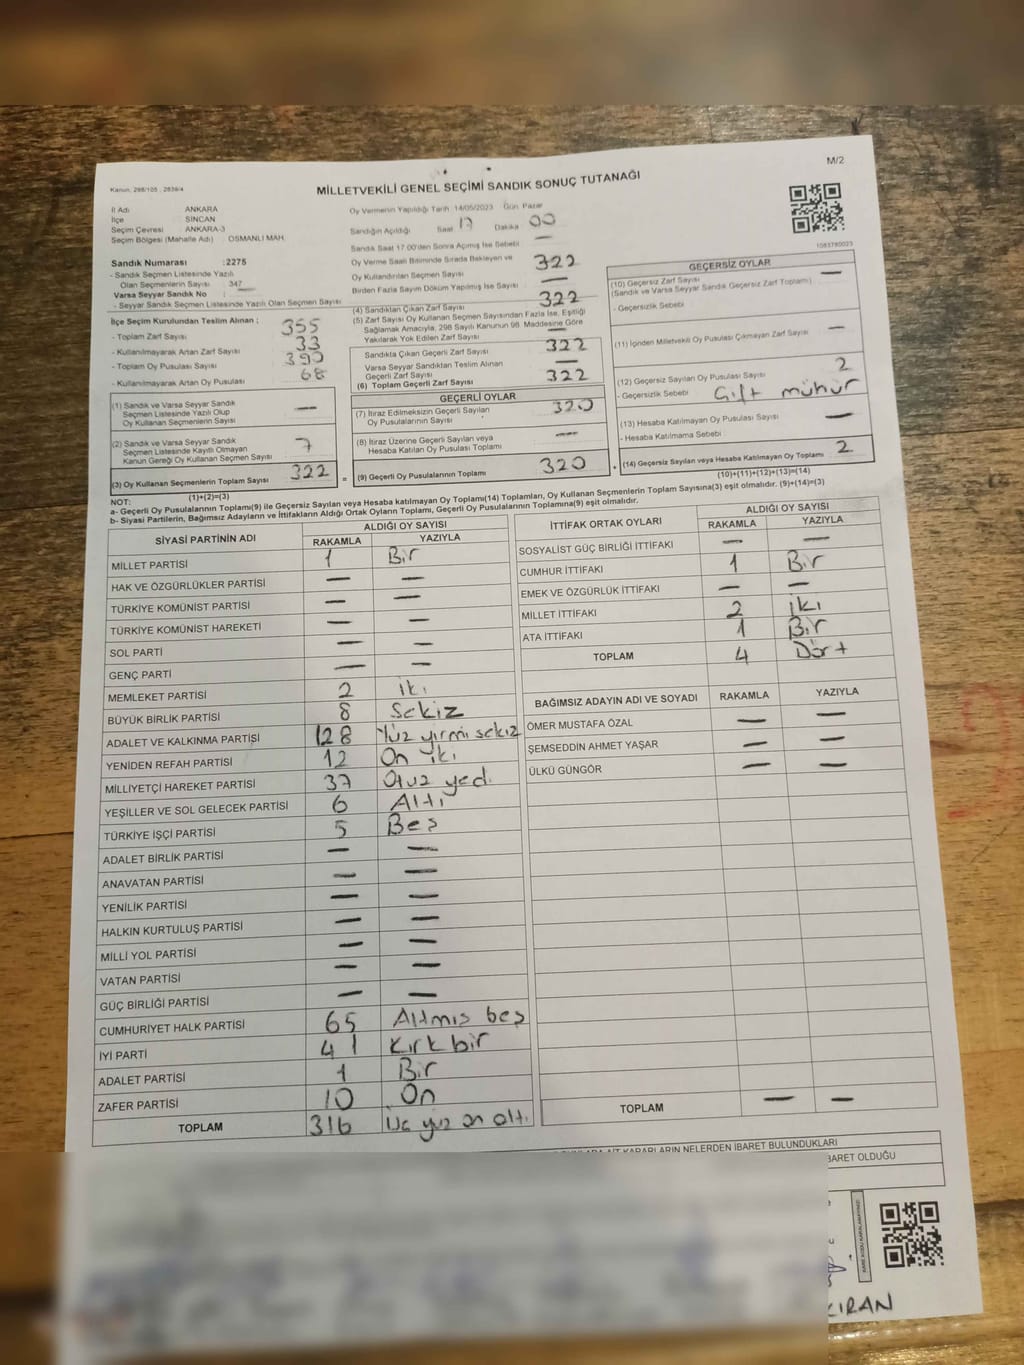 M/2
Kanun, 298/105 , 2839/4
MİLLETVEKİLİ GENEL SEÇİMİ SANDIK SONUÇ TUTANAĞI
İl Adı ANKARA
İlçe SİNCAN
Seçim Çevresi ANKARA-3
Seçim Bölgesi (Mahalle Adı) OSMANLI MAH.
Sandık Numarası :2275
- Sandık Seçmen Listesinde Yazılı
Olan Seçmenlerin Sayısı : 347
Varsa Seyyar Sandık No : —
- Seyyar Sandık Seçmen Listesinde Yazılı Olan Seçmen Sayısı
Oy Vermenin Yapıldığı Tarih 14/05/2023 Gün Pazar
Sandığın Açıldığı Saat 17 Dakika 00
Sandık Saat 17.00'den Sonra Açımış İse Sebebi —
Oy Verme Saati Bitiminde Sırada Bekleyen ve
Oy Kullandırılan Seçmen Sayısı 322
Birden Fazla Sayım Döküm Yapılmış İse Sayısı —
1083780023
İlçe Seçim Kurulundan Teslim Alınan ;
- Toplam Zarf Sayısı 355
- Kullanılmayarak Artan Zarf Sayısı 33
- Toplam Oy Pusulası Sayısı 390
- Kullanılmayarak Artan Oy Pusulası 68
(1) Sandık ve Varsa Seyyar Sandık
Seçmen Listesinde Yazılı Olup
Oy Kullanan Seçmenlerin Sayısı —
(2) Sandık ve Varsa Seyyar Sandık
Seçmen Listesinde Kayıtlı Olmayan
Kanun Gereği Oy Kullanan Seçmen Sayısı 7
(3) Oy Kullanan Seçmenlerin Toplam Sayısı 322
(1)+(2)=(3)
(4) Sandıktan Çıkan Zarf Sayısı 322
(5) Zarf Sayısı Oy Kullanan Seçmen Sayısından Fazla İse, Eşitliği
Sağlamak Amacıyla, 298 Sayılı Kanunun 98. Maddesine Göre
Yakılarak Yok Edilen Zarf Sayısı —
Sandıkta Çıkan Geçerli Zarf Sayısı 322
Varsa Seyyar Sandıktan Teslim Alınan
Geçerli Zarf Sayısı —
(6) Toplam Geçerli Zarf Sayısı 322
GEÇERLİ OYLAR
(7) İtiraz Edilmeksizin Geçerli Sayılan
Oy Pusulalarının Sayısı 320
(8) İtiraz Üzerine Geçerli Sayılan veya
Hesaba Katılan Oy Pusulası Toplamı —
= (9) Geçerli Oy Pusulalarının Toplamı 320
GEÇERSİZ OYLAR
(10) Geçersiz Zarf Sayısı —
(Sandık ve Varsa Seyyar Sandık Geçersiz Zarf Toplamı)
- Geçersizlik Sebebi
(11) İçinden Milletvekili Oy Pusulası Çıkmayan Zarf Sayısı —
(12) Geçersiz Sayılan Oy Pusulası Sayısı 2
- Geçersizlik Sebebi Çift mühür
(13) Hesaba Katılmayan Oy Pusulası Sayısı —
- Hesaba Katılmama Sebebi
+ (14) Geçersiz Sayılan veya Hesaba Katılmayan Oy Toplamı 2
(10)+(11)+(12)+(13)=(14)
NOT:
a- Geçerli Oy Pusulalarının Toplamı(9) ile Geçersiz Sayılan veya Hesaba katılmayan Oy Toplamı(14) Toplamları, Oy Kullanan Seçmenlerin Toplam Sayısına(3) eşit olmalıdır. (9)+(14)=(3)
b- Siyasi Partilerin, Bağımsız Adayların ve İttifakların Aldığı Ortak Oyların Toplamı, Geçerli Oy Pusulalarının Toplamına(9) eşit olmalıdır.
SİYASİ PARTİNİN ADI ALDIĞI OY SAYISI
RAKAMLA YAZIYLA
MİLLET PARTİSİ 1 Bir
HAK VE ÖZGÜRLÜKLER PARTİSİ — —
TÜRKİYE KOMÜNİST PARTİSİ — —
TÜRKİYE KOMÜNİST HAREKETİ — —
SOL PARTİ — —
GENÇ PARTİ — —
MEMLEKET PARTİSİ 2 iki
BÜYÜK BİRLİK PARTİSİ 8 Sekiz
ADALET VE KALKINMA PARTİSİ 128 Yüz yirmi sekiz
YENİDEN REFAH PARTİSİ 12 On iki
MİLLİYETÇİ HAREKET PARTİSİ 37 Otuz yedi
YEŞİLLER VE SOL GELECEK PARTİSİ 6 Altı
TÜRKİYE İŞÇİ PARTİSİ 5 Beş
ADALET BİRLİK PARTİSİ — —
ANAVATAN PARTİSİ — —
YENİLİK PARTİSİ — —
HALKIN KURTULUŞ PARTİSİ — —
MİLLİ YOL PARTİSİ — —
VATAN PARTİSİ — —
GÜÇ BİRLİĞİ PARTİSİ — —
CUMHURİYET HALK PARTİSİ 65 Altmış beş
İYİ PARTİ 41 Kırk bir
ADALET PARTİSİ 1 Bir
ZAFER PARTİSİ 10 On
TOPLAM 316 Üç yüz on altı
İTTİFAK ORTAK OYLARI ALDIĞI OY SAYISI
RAKAMLA YAZIYLA
SOSYALİST GÜÇ BİRLİĞİ İTTİFAKI — —
CUMHUR İTTİFAKI 1 Bir
EMEK VE ÖZGÜRLÜK İTTİFAKI — —
MİLLET İTTİFAKI 2 iki
ATA İTTİFAKI 1 Bir
TOPLAM 4 Dört
BAĞIMSIZ ADAYIN ADI VE SOYADI RAKAMLA YAZIYLA
ÖMER MUSTAFA ÖZAL — —
ŞEMSEDDİN AHMET YAŞAR — —
ÜLKÜ GÜNGÖR — —
TOPLAM — —
AİT KARARLARIN NELERDEN İBARET BULUNDUKLARI
İBARET OLDUĞU
KIRAN